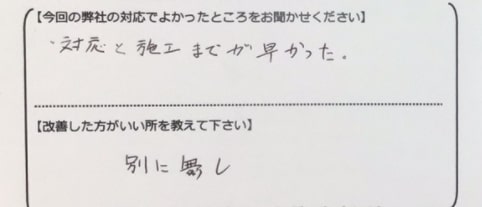 【今回の弊社の対応でよかったところをお聞かせください】
・対応と施工までが早かった。
【改善した方がいい所を教えて下さい】
別に無し